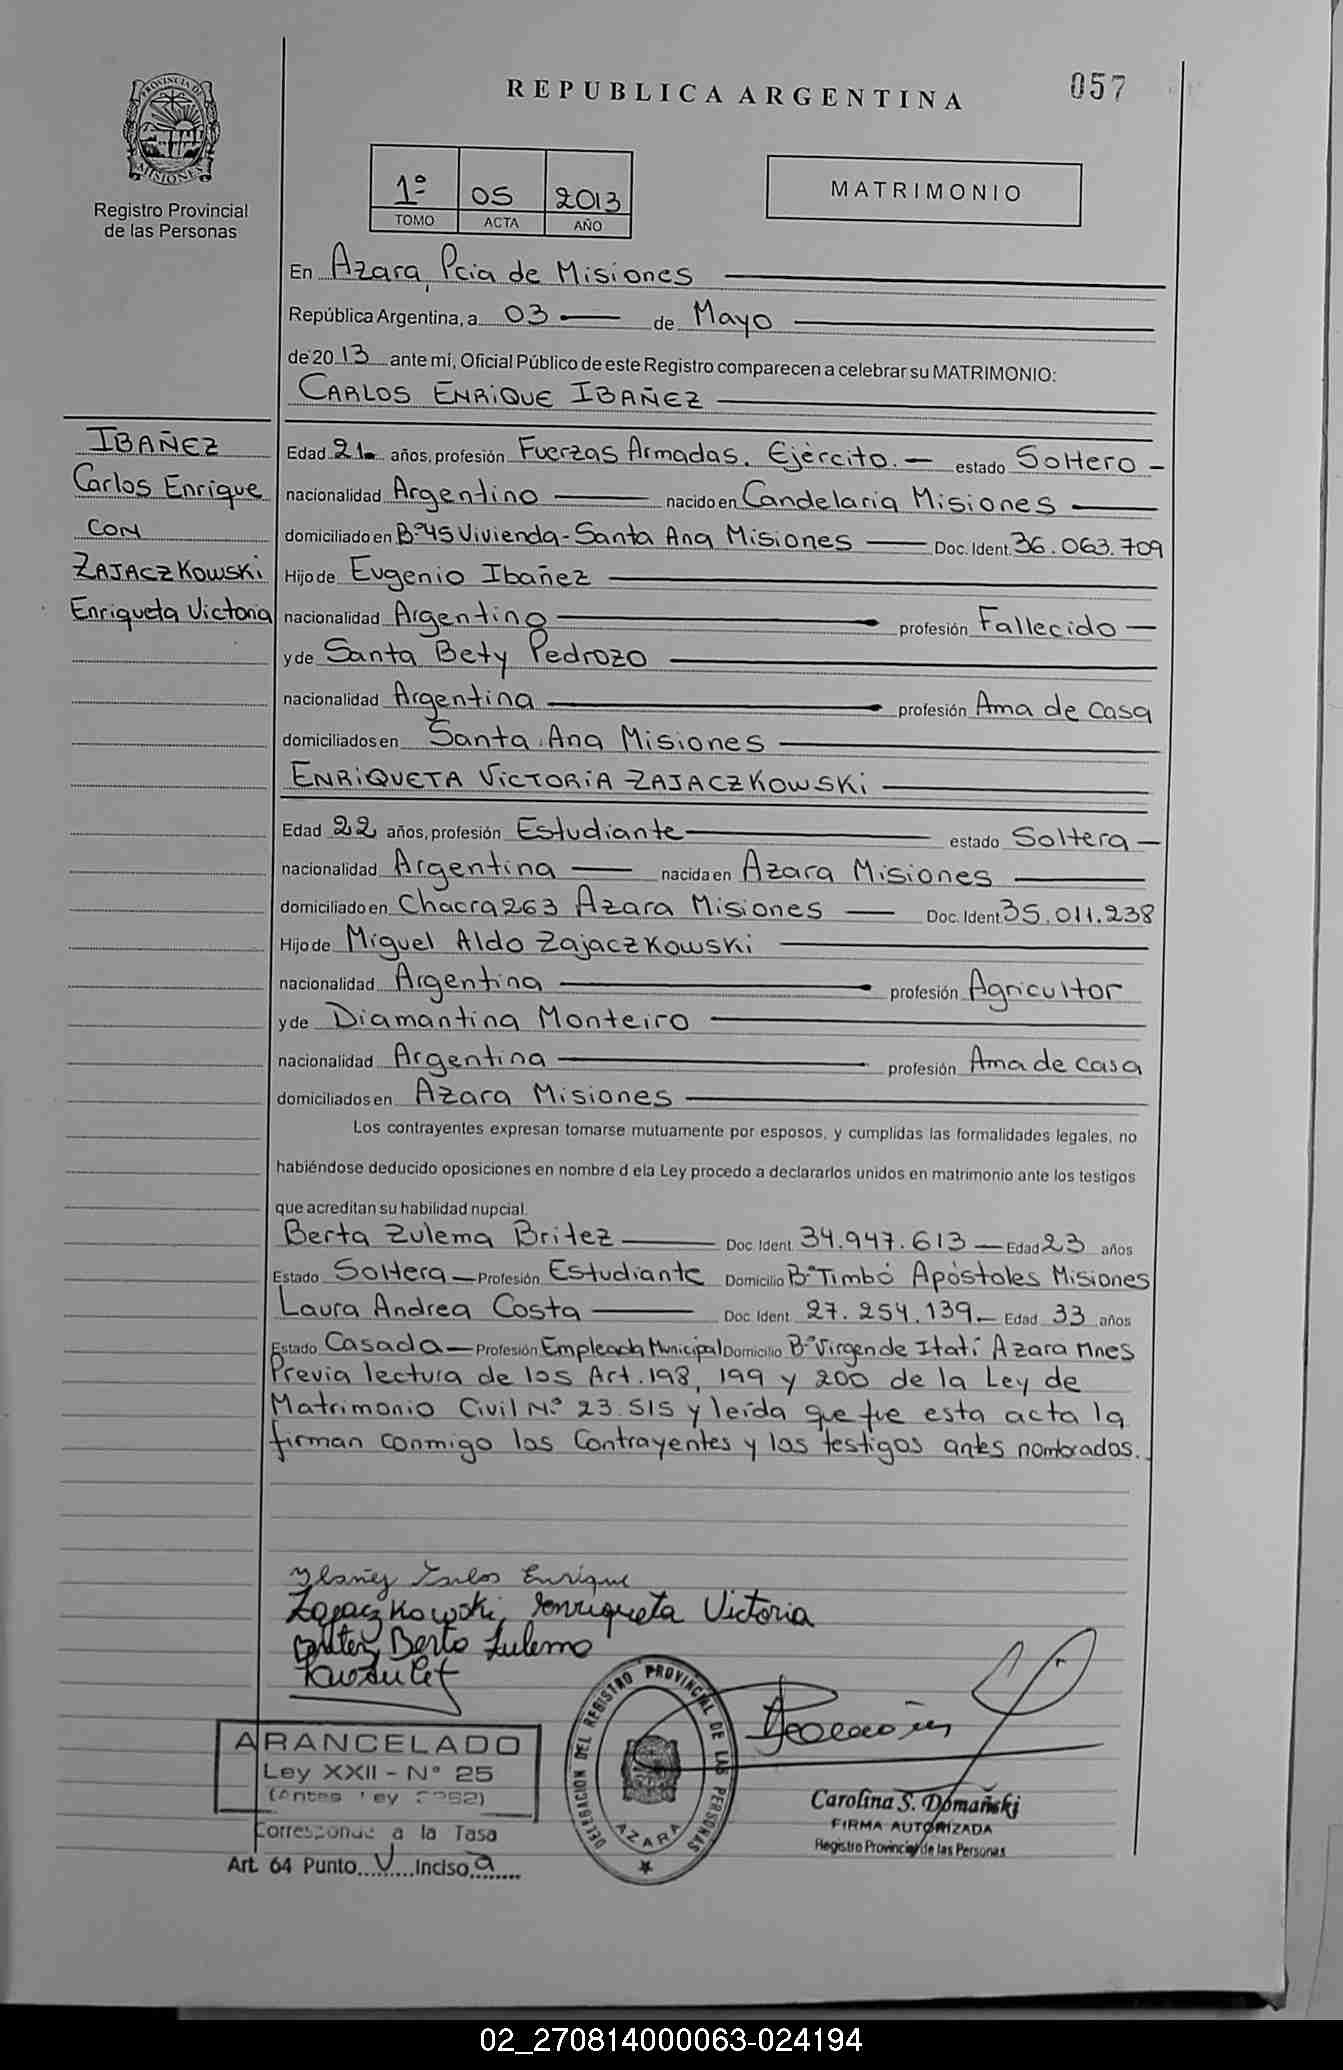 REPUBLICA ARGENTINA
057
PROVINCIA DE
MISIONES
Registro Provincial
de las Personas
1º 05 2013
TOMO ACTA AÑO
MATRIMONIO
En Azara, Pcia de Misiones
República Argentina, a 03 de Mayo
de 20 13 ante mí, Oficial Público de este Registro comparecen a celebrar su MATRIMONIO:
CARLOS ENRiQUE IBAÑEZ
IBAÑEZ
Carlos Enrique
CON
ZAJACZKOWSKi
Enriqueta Victoria
Edad 21 años, profesión Fuerzas Armadas. Ejército. estado Soltero
nacionalidad Argentino nacido en Candelaria Misiones
domiciliado en Bº45 Vivienda-Santa Ana Misiones Doc. Ident. 36.063.709
Hijo de Eugenio Ibañez
nacionalidad Argentino profesión Fallecido
y de Santa Bety Pedrozo
nacionalidad Argentina profesión Ama de casa
domiciliados en Santa Ana Misiones
ENRiQUETA VicToRiA ZAJACZKOWSKi
Edad 22 años, profesión Estudiante estado Soltera
nacionalidad Argentina nacida en Azara Misiones
domiciliado en Chacra 263 Azara Misiones Doc. Ident. 35.011.238
Hijo de Miguel Aldo Zajaczkowski
nacionalidad Argentina profesión Agricultor
y de Diamantina Monteiro
nacionalidad Argentina profesión Ama de casa
domiciliados en Azara Misiones
Los contrayentes expresan tomarse mutuamente por esposos, y cumplidas las formalidades legales, no
habiéndose deducido oposiciones en nombre d ela Ley procedo a declararlos unidos en matrimonio ante los testigos
que acreditan su habilidad nupcial.
Berta Zulema Britez Doc Ident 34.947.613 Edad 23 años
Estado Soltera Profesión Estudiante Domicilio Bº Timbó Apóstoles Misiones
Laura Andrea Costa Doc Ident 27.254.139 Edad 33 años
Estado Casada Profesión Empleada Municipal Domicilio Bº Virgen de Itatí Azara Mnes
Previa lectura de los Art. 198, 199 y 200 de la Ley de
Matrimonio Civil Nº 23.515 y leída que fue esta acta la
firman conmigo los Contrayentes y los testigos antes nombrados.
Ybañez Carlos Enrique
Zajaczkowski, Enriqueta Victoria
Britez Berta Zulema
ARANCELADO
Ley XXII - Nº 25
(Antes Ley
Corresponde a la Tasa
Art. 64 Punto V Inciso a
DELEGACION DEL REGISTRO PROVINCIAL DE LAS PERSONAS
AZARA
Carolina S. Domañski
FIRMA AUTORIZADA
Registro Provincial de las Personas
02_270814000063-024194